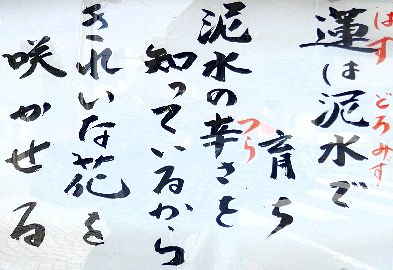 はす どろみず
蓮は泥水で
育ち
つら
泥水の辛さを
知っているから
きれいな花を
咲かせる